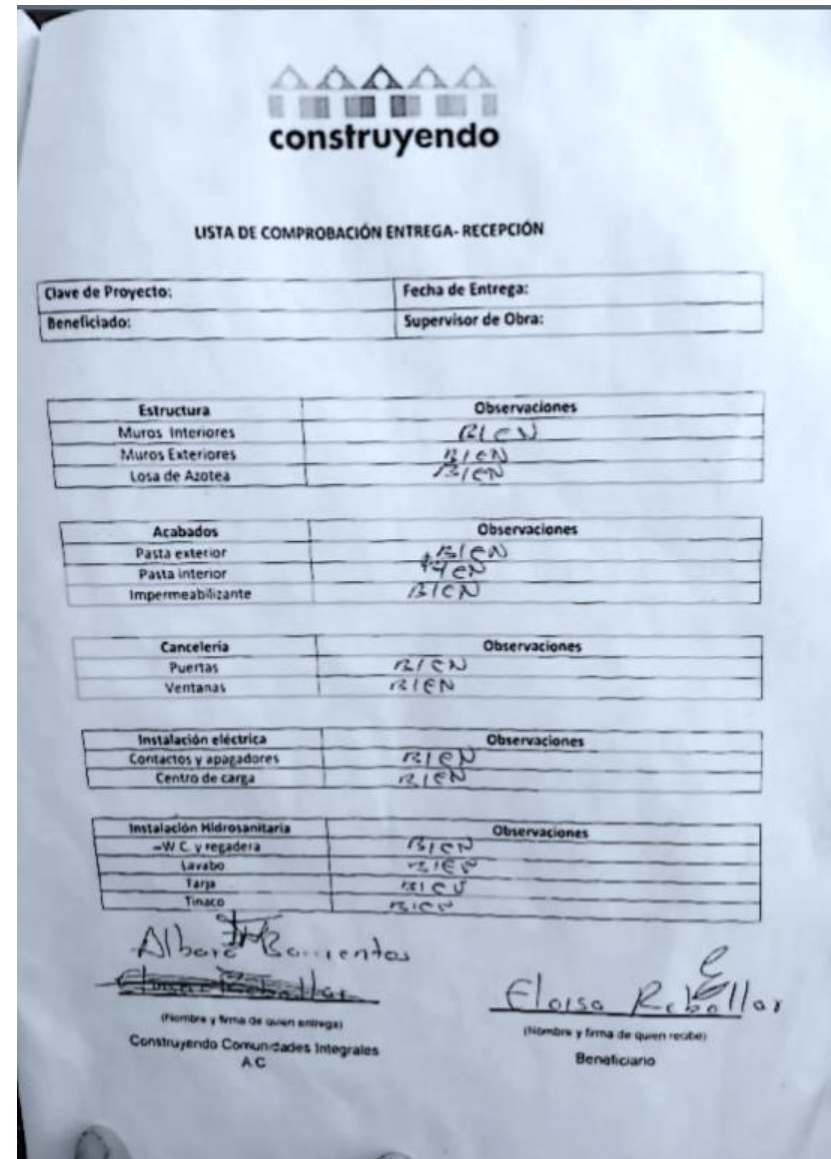 construyendo
LISTA DE COMPROBACIÓN ENTREGA- RECEPCIÓN
Clave de Proyecto: Fecha de Entrega:
Beneficiado: Supervisor de Obra:
Estructura Observaciones
Muros Interiores BIEN
Muros Exteriores BIEN
Losa de Azotea BIEN
Acabados Observaciones
Pasta exterior BIEN
Pasta interior BIEN
Impermeabilizante BIEN
Cancelería Observaciones
Puertas BIEN
Ventanas BIEN
Instalación eléctrica Observaciones
Contactos y apagadores BIEN
Centro de carga BIEN
Instalación Hidrosanitaria Observaciones
W.C. y regadera BIEN
Lavabo BIEN
Tarja BIEN
Tinaco BIEN
Albaro Barrientos
Eloisa Rebollar
(Nombre y firma de quien entrega) (Nombre y firma de quien recibe)
Construyendo Comunidades Integrales Beneficiario
A C